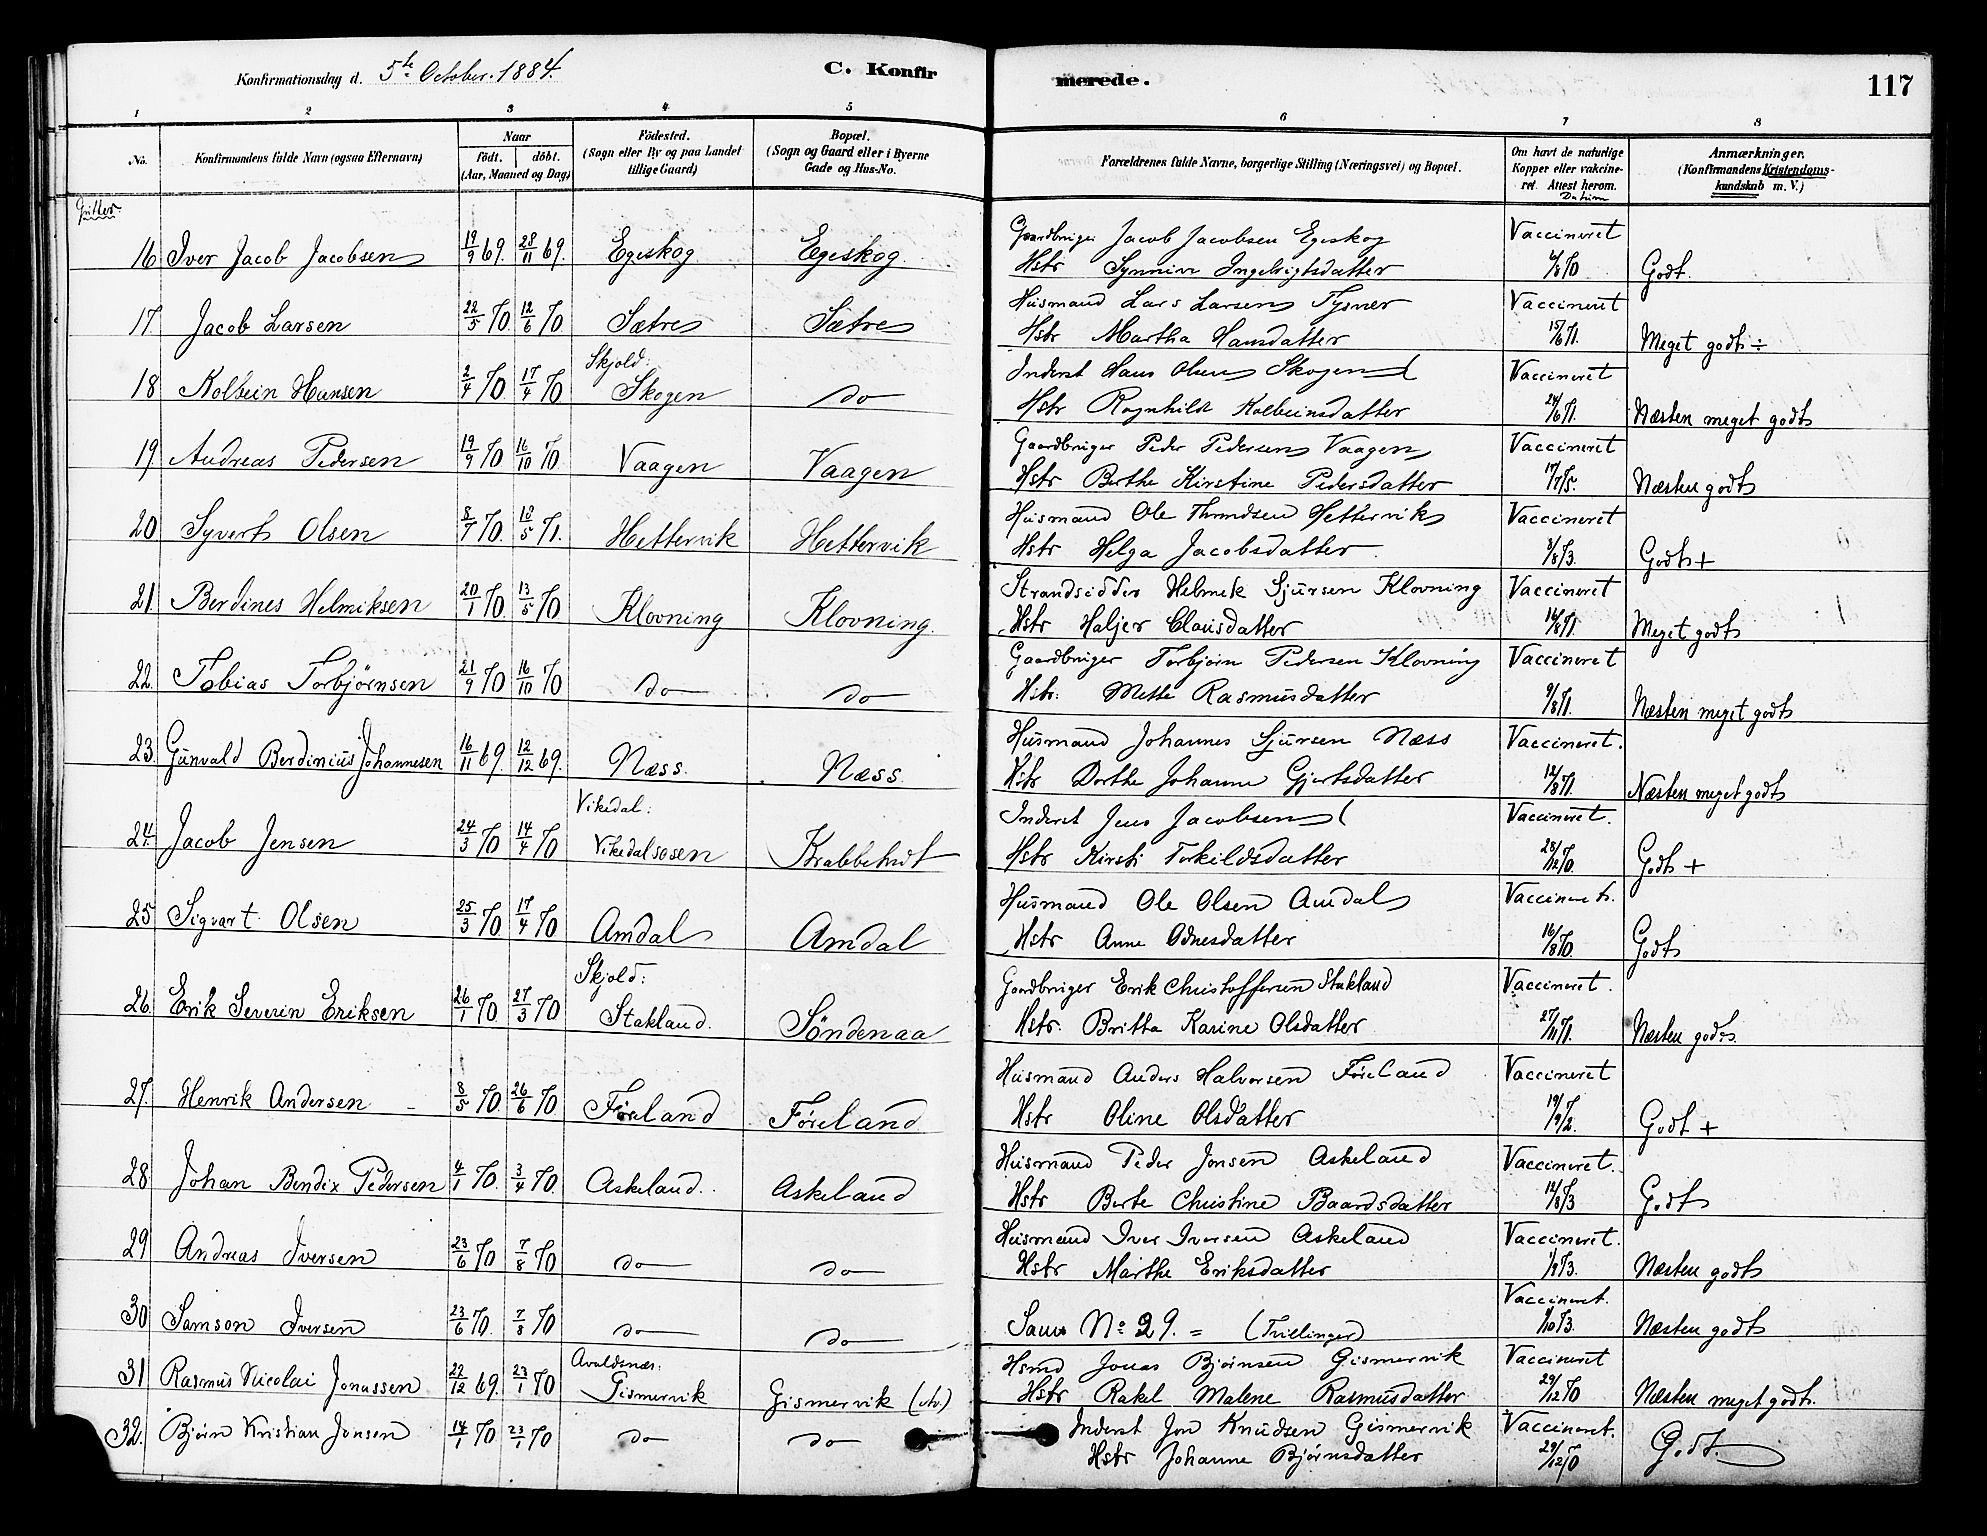 Konfirmationsdag d. 5te October. 1884.
C. Konfirmerede.
117
1 2 3 4 5 6 7 8
No.
Konfirmandens fulde Navn (ogsaa Efternavn)
Naar
födt. döbt.
(Aar, Maaned og Dag)
Födested.
(Sogn eller By og paa Landet
tillige Gaard)
Bopæl.
(Sogn og Gaard eller i Byerne
Gade og Hus-No.
Forældrenes fulde Navne, borgerlige Stilling (Næringsvei) og Bopæl.
Om havt de naturlige
Kopper eller vakcine-
ret. Attest herom.
Datum
Anmærkninger.
(Konfirmandens Kristendoms-
kundskab m. V.)
Gutter.
16 Iver Jacob Jacobsen 19/9 69. 28/11 69. Egeskog Egeskog Gaardbruger Jacob Jacobsen Egeskog Vaccineret
Hstr Synnive Ingebrigtsdatter Godt.
17 Jacob Larsen 22/5 70. 12/6 70 Sætre Sætre Husmand Lars Larsen Tysver Vaccineret
Hstr Martha Hansdatter 15/6 71. Meget godt ÷
18 Kolbein Hansen 2/4 70. 17/4 70 Skjold: Skogen do Inderst Hans Olsen Skogen Vaccineret
Hstr Ragnhild Kolbeinsdatter 24/6 71. Næsten meget godt
19 Andreas Pedersen 19/9 70 16/10 70. Vaagen Vaagen Gaardbruger Peder Pedersen Vaagen Vaccineret
Hstr Berthe Kirstine Pedersdatter 17/7 75. Næsten godt
20 Syvert Olsen 8/7 70. 18/5 71. Hettervik Hettervik Husmand Ole Thundsen Hettervik Vaccineret
Hstr Helga Jacobsdatter 8/8 73. Godt +
21. Berdines Helmiksen 20/1 70. 13/5 70 Klovning Klovning. Strandsidder Helmik Sjursen Klovning Vaccineret
Hstr Haljer Clausdatter 16/8 71. Meget godt
22. Tobias Torbjörnsen 21/9 70 16/10 70 do do Gaardbruger Torbjörn Pedersen Klovning Vaccineret
Hstr. Mette Rasmusdatter 9/8 71. Næsten meget godt
23. Gunvald Berdinius Johannesen 16/11 69. 12/12 69. Næss. Næss. Husmand Johannes Sjursen Næss Vaccineret.
Hstr Dorthe Johanne Gjertsdatter 12/8 71. Næsten meget godt
24. Jacob Jensen 24/3 70 14/4 70 Vikedal: Vikedalsosen Krabbetveit Inderst Jens Jacobsen Vaccineret.
Hstr Kirsti Torkildsdatter 28/12 70. Godt +
25 Sigvart Olsen 25/3 70 17/4 70 Amdal Amdal Husmand Ole Olsen Amdal Vaccineret.
Hstr Anne Odnesdatter 16/8 70. Godt
26. Erik Severin Eriksen 26/1 70. 27/3 70 Skjold: Stakland. Söndenaa Gaardbruger Erik Christoffersen Stakland Vaccineret.
Hstr. Britta Karine Olsdatter 27/11 71. Næsten godt.
27. Henrik Andersen 8/5 70. 26/6 70 Föreland Föreland Husmand Anders Halvorsen Föreland Vaccineret
Hstr Oline Olsdatter 19/9 72. Godt +
28 Johan Bendix Pedersen 4/1 70. 3/4 70. Askeland. Askeland Husmand Peder Jonsen Askeland Vaccineret.
Hstr Berte Christine Baardsdatter 12/8 73 Godt
29 Andreas Iversen 23/6 70 7/8 70 do do Husmand Iver Iversen Askeland Vaccineret.
Hstr Marthe Eriksdatter 1/8 73. Næsten godt
30 Samson Iversen 23/6 70. 7/8 70 do do Sam No 29. = (Tvillinger) Vaccineret.
Næsten godt
31 Rasmus Nicolai Jonassen 22/12 69. 23/1 70 Avaldsnæs: Gismervik Gismervik Hsmd Jonas Bjørnsen Gismervik Vaccineret
Hstr Rakel Malene Rasmusdatter 29/12 70 Næsten meget godt.
32. Bjørn Kristian Jonsen 14/1 70 23/1 70 do do Inderst Jon Knudsen Gismervik Vaccineret.
Hstr Johanne Bjørnsdatter 29/12 70 Godt.